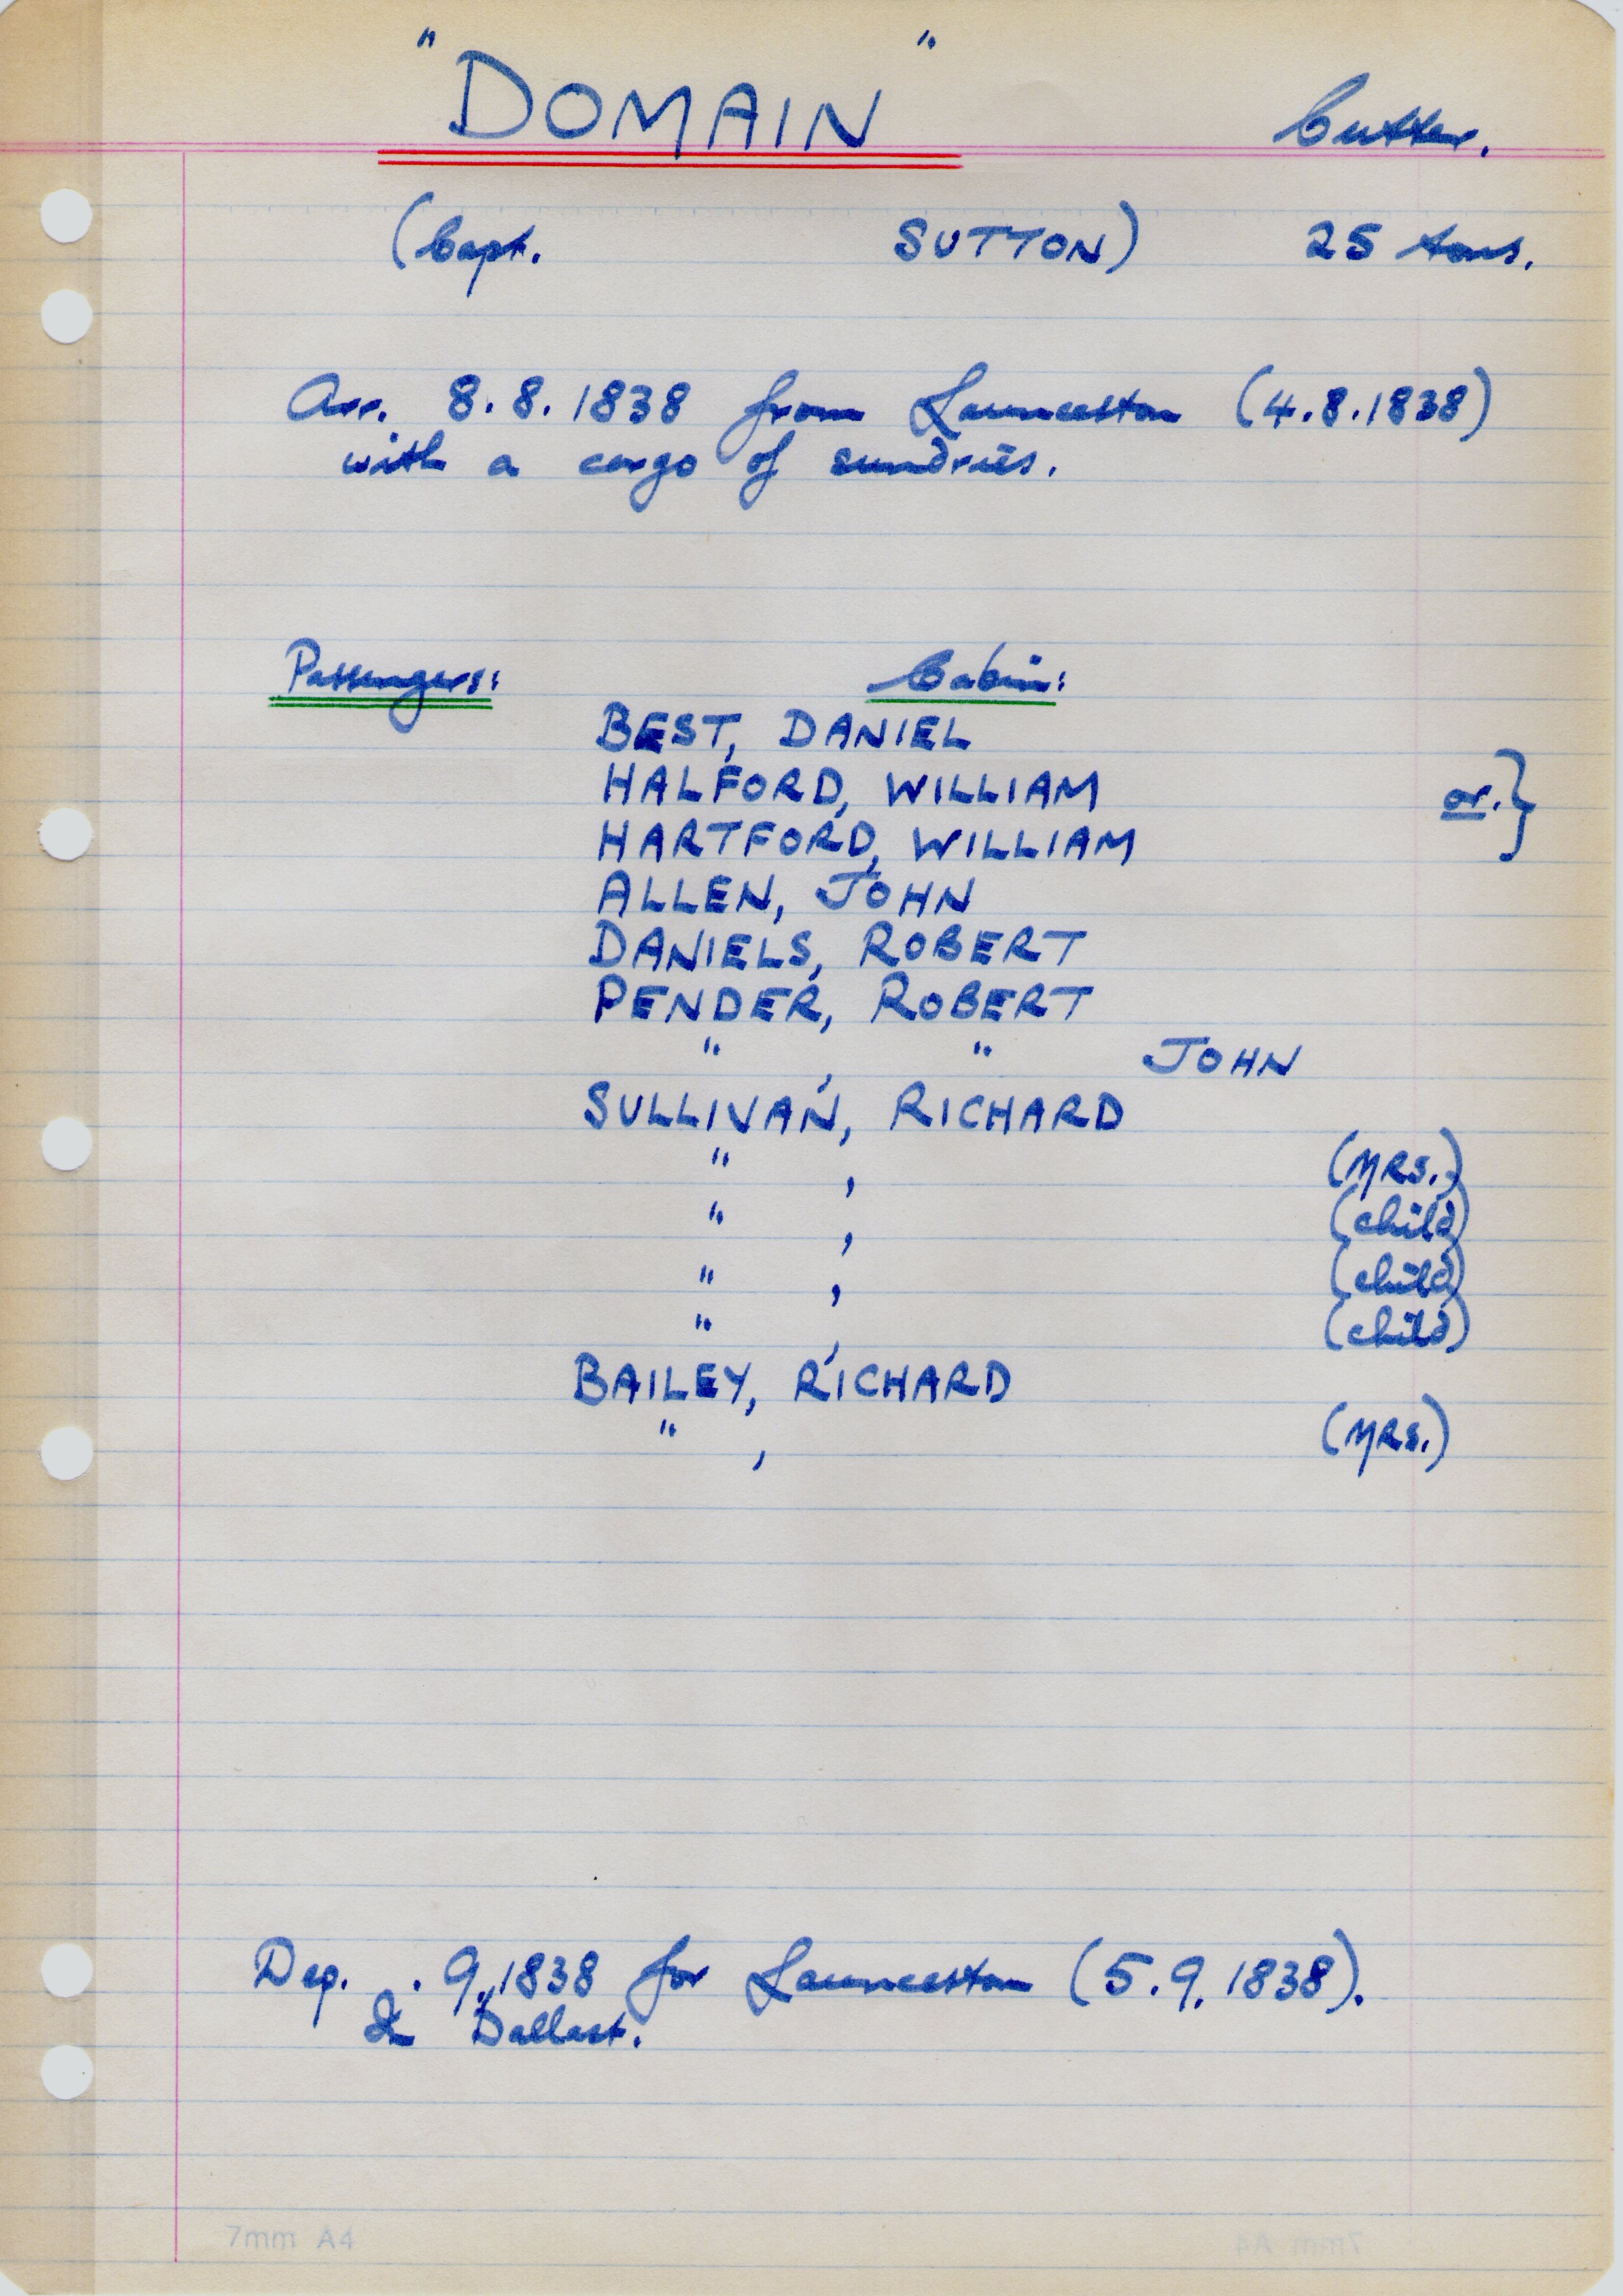 "DOMAIN" Cutter.
(Capt. SUTTON) 25 tons.
Arr. 8.8.1838 from Launceston (4.8.1838)
with a cargo of sundries.
Passengers: Cabin:
BEST, DANIEL
HALFORD, WILLIAM or. }
HARTFORD, WILLIAM
ALLEN, JOHN
DANIELS, ROBERT
PENDER, ROBERT
" , " JOHN
SULLIVAN, RICHARD
" , (MRS.)
" , (child)
" , (child)
" , (child)
BAILEY, RICHARD
" , (MRS.)
Dep. . 9.1838 for Launceston (5.9.1838).
In Ballast.
7mm A4
7mm A4